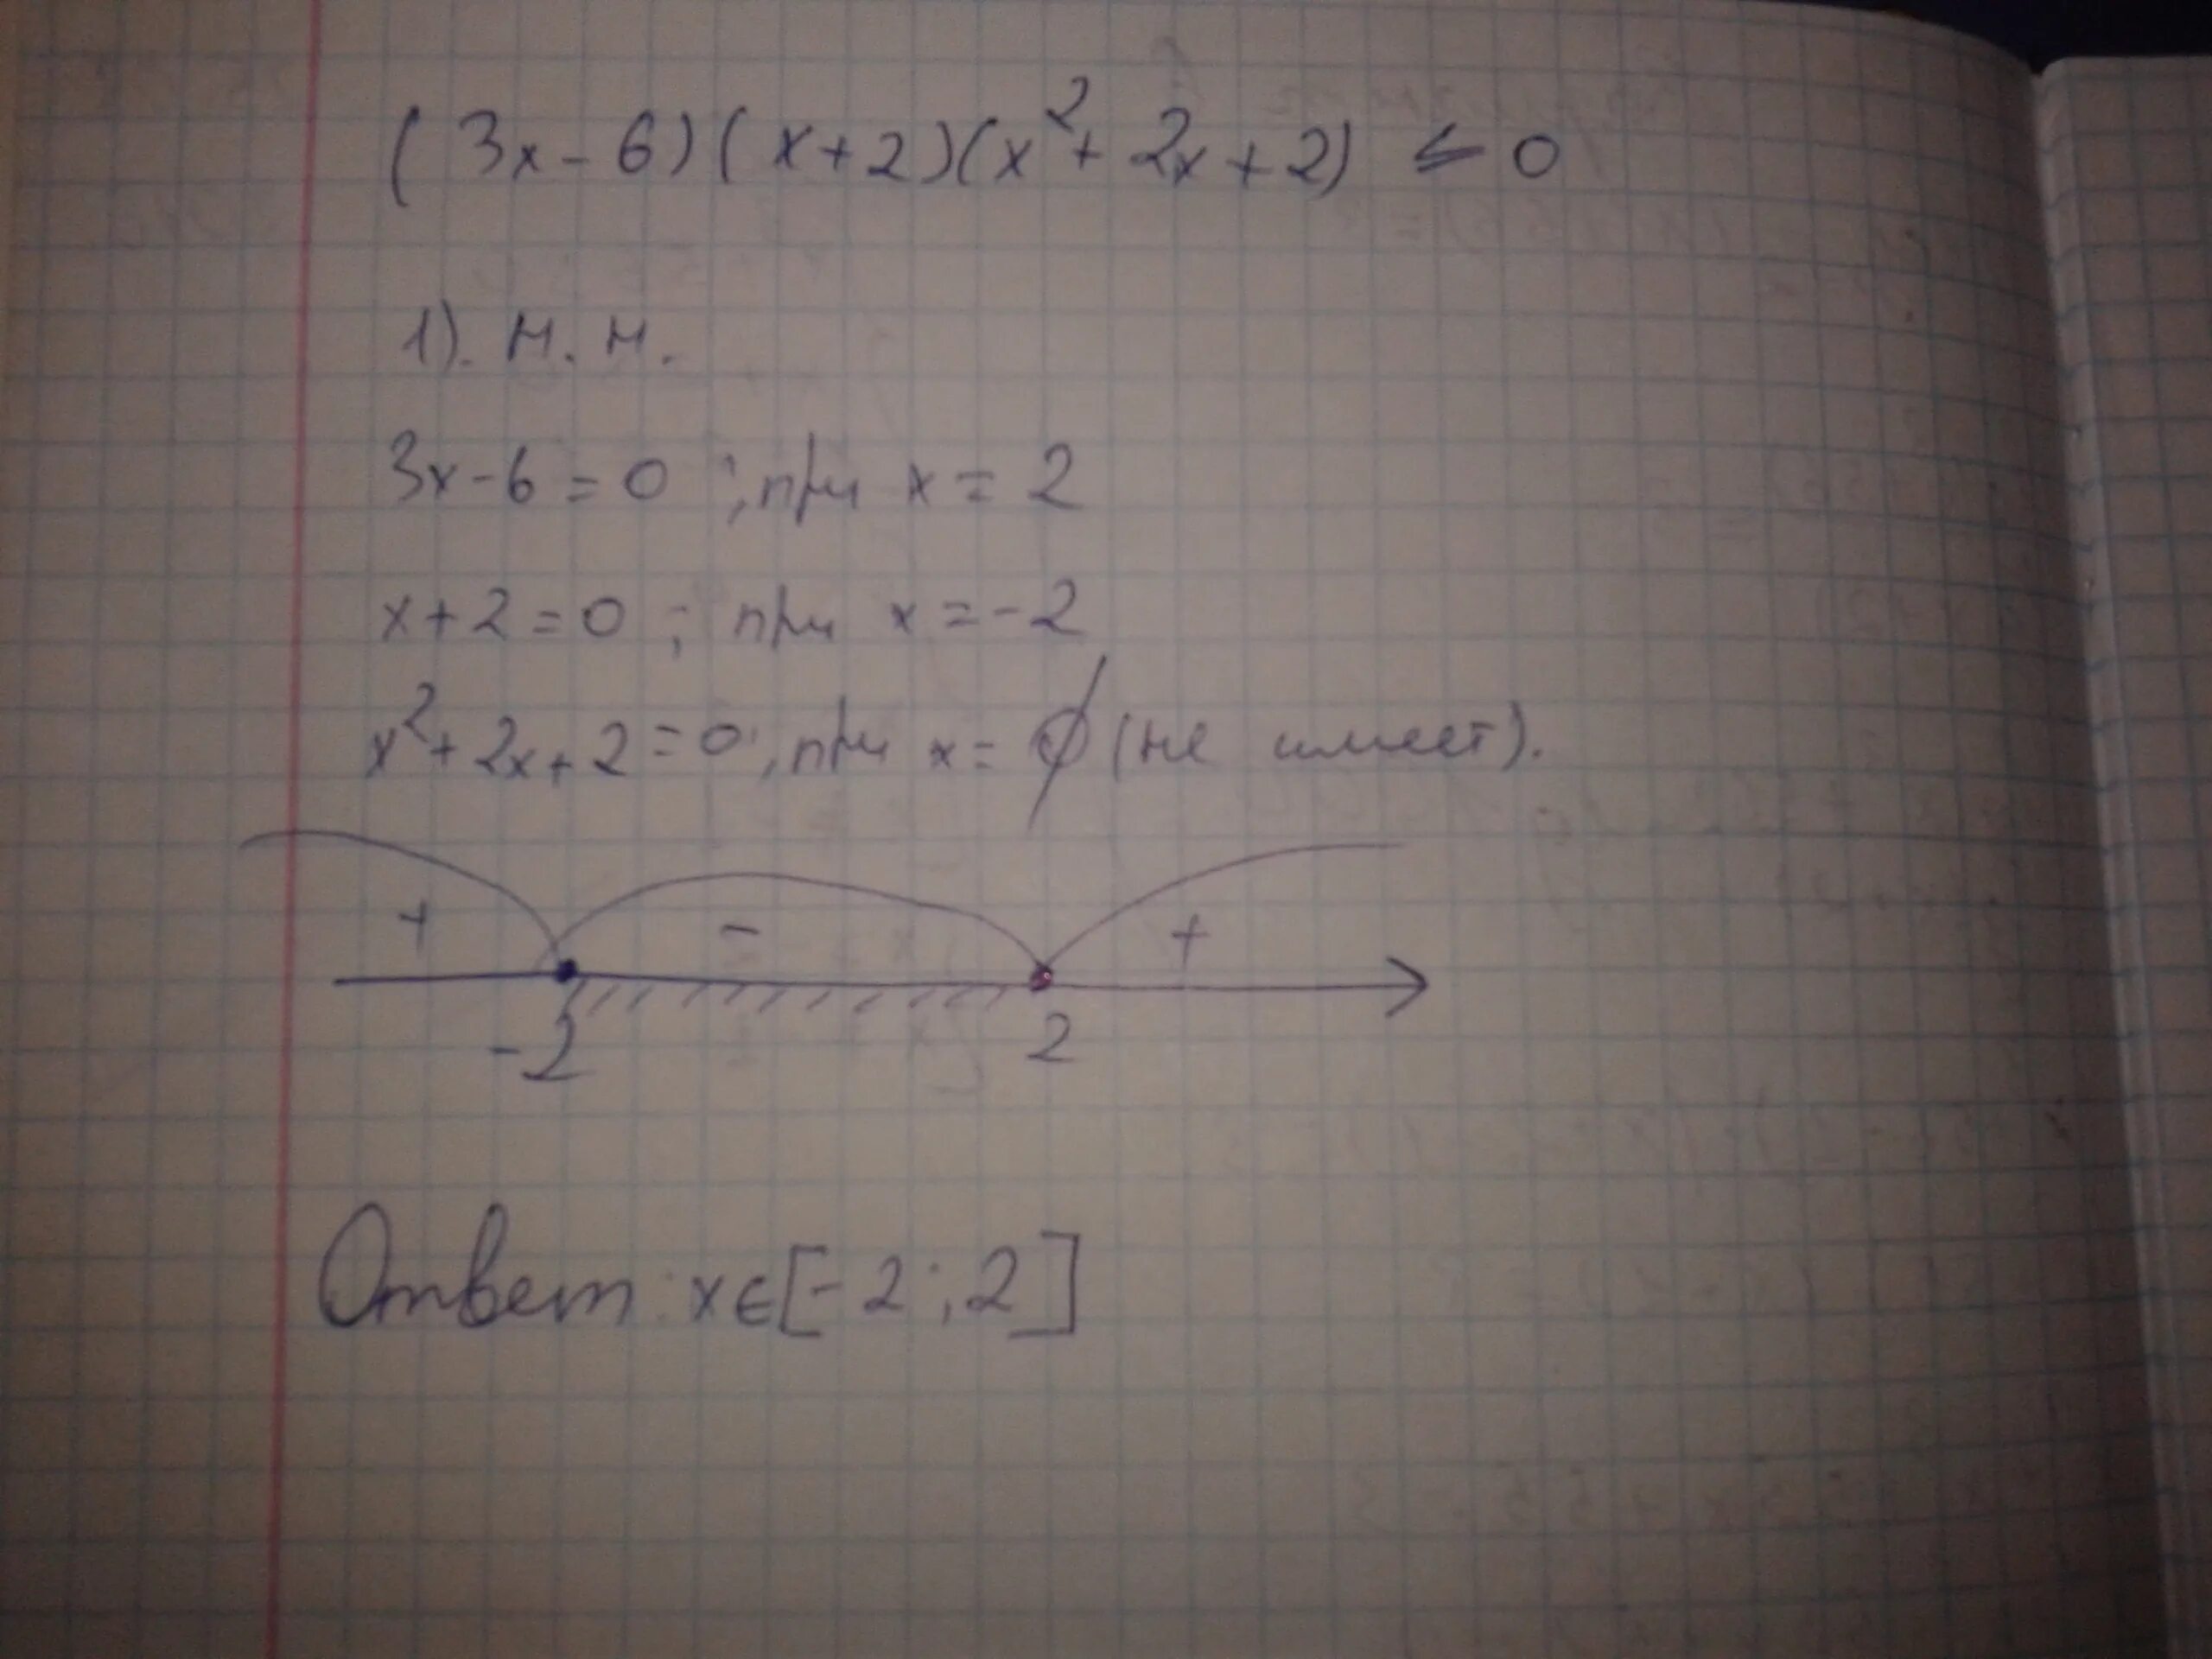 (3x-6)(x+2)(x²+2x+2) ≤ 0
1). н. н.
3x-6=0 ; при x = 2
x+2=0 ; при x=-2
x²+2x+2=0 ; при x= ∅ (не имеет).
+ - +
-2 2
Ответ: x∈[-2;2]